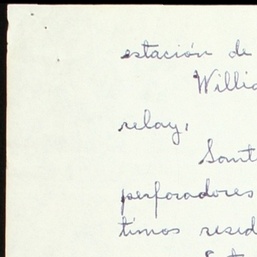 estación de
Willia
relay,
Sant
perforadores
timos resid